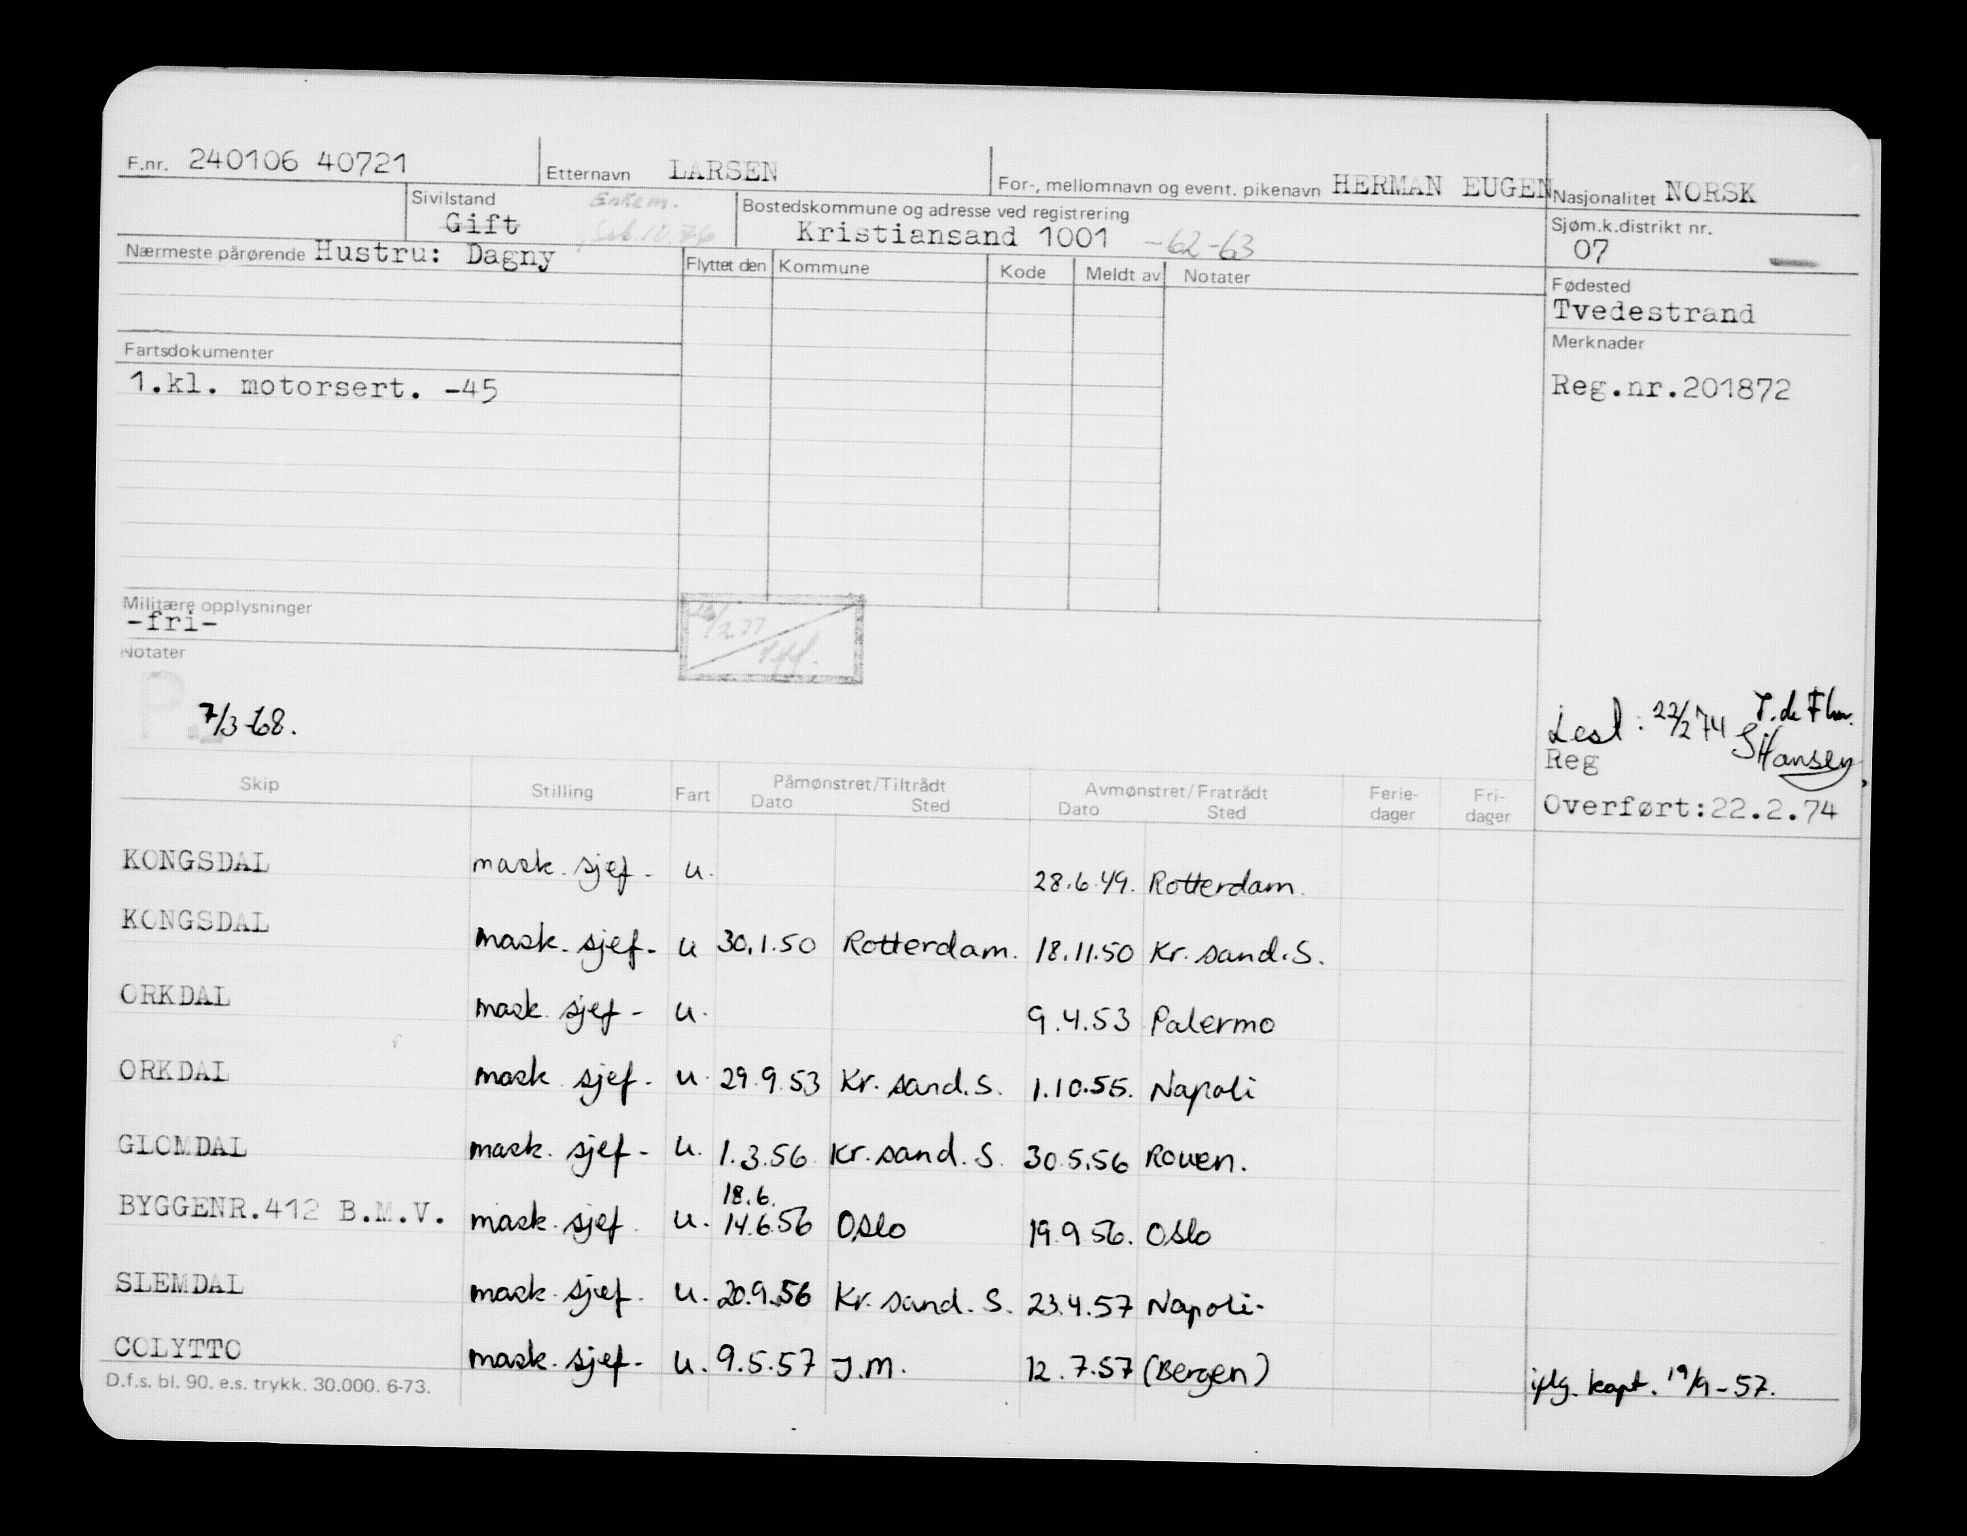 F.nr. 240106 40721 Etternavn LARSEN For-, mellomnavn og event. pikenavn HERMAN EUGEN Nasjonalitet NORSK
Sivilstand Gift Enkem. Bostedskommune og adresse ved registrering Kristiansand 1001 -62-63 Sjøm.k.distrikt nr. 07
Nærmeste pårørende Hustru: Dagny Flyttet den Kommune Kode Meldt av Notater
Fødested
Tvedestrand
Merknader
Reg.nr.201872
Fartsdokumenter
1.kl. motorsert. -45
Militære opplysninger
-fri-
Notater
P.
7/3-68.
Lest: 22/2 74
Reg SHansen
Overført:22.2.74
Skip Stilling Fart Påmønstret/Tiltrådt Dato Sted Avmønstret/Fratrådt Dato Sted Ferie-dager Fri-dager
KONGSDAL mask. sjef- u. 28.6.49. Rotterdam.
KONGSDAL mask. sjef- u 30.1.50 Rotterdam. 18.11.50 Kr. sand. S.
ORKDAL mask. sjef- u. 9.4.53 Palermo
ORKDAL mask. sjef- u. 29.9.53 Kr. sand. S. 1.10.55. Napoli
GLOMDAL mask. sjef- u. 1.3.56 Kr. sand. S. 30.5.56 Rouen.
18.6.
BYGGENR.412 B.M.V. mask. sjef. u. 14.6.56 Oslo 19.9 56. Oslo
SLEMDAL mask. sjef. u. 20.9.56 Kr. sand. S. 23.4.57 Napoli-
COLYTTO mask. sjef- u. 9.5.57 J.M. 12.7.57 (Bergen) iflg. kapt. 19/9-57.
D.f.s. bl. 90. e.s. trykk. 30.000. 6-73.